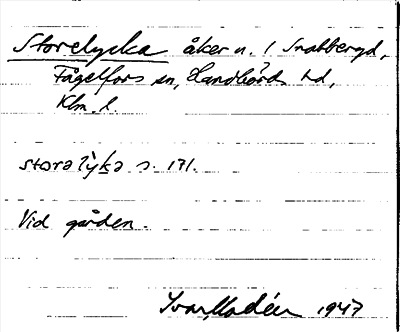 Storelycka åker n. / Snabberyd,
Fågelfors sn, Handbörds hd,
Klm. l.
storəlỳkə s. 171.
Vid gården.
Ivar Modéer 1947